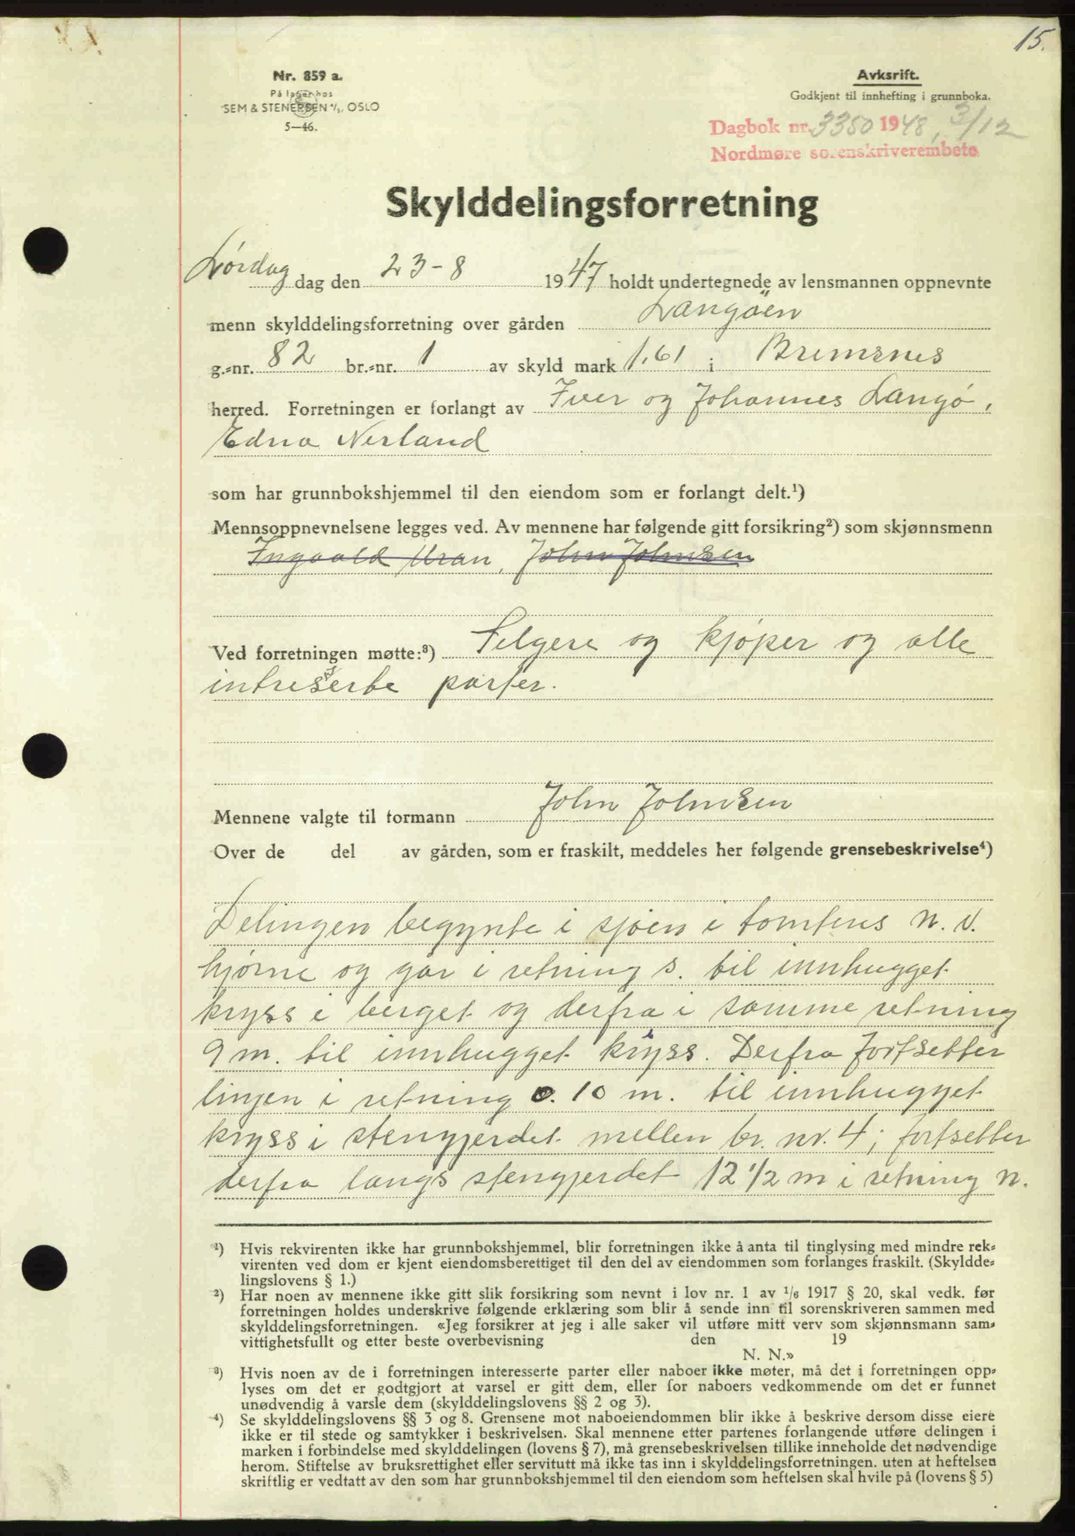 15.
Nr. 859 a.
På lager hos
SEM & STENERSEN A/S, OSLO
5—46.
Avksrift.
Godkjent til innhefting i grunnboka.
Dagbok nr. 3350 1948, 3/12
Nordmøre sorenskriverembete
Skylddelingsforretning
Lördag dag den 23-8 1947 holdt undertegnede av lensmannen oppnevnte
menn skylddelingsforretning over gården Langöen
g.-nr. 82 br.-nr. 1 av skyld mark 1,61 i Bremsnes
herred. Forretningen er forlangt av Iver og Johannes Langö,
Edna Nerland
som har grunnbokshjemmel til den eiendom som er forlangt delt.¹)
Mennsoppnevnelsene legges ved. Av mennene har følgende gitt forsikring²) som skjønnsmenn
Ingvald Uran, John Johnsen
Ved forretningen møtte:³) Selgere og kjöper og alle
intresserte parter.
Mennene valgte til formann John Johnsen
Over de del av gården, som er fraskilt, meddeles her følgende grensebeskrivelse⁴)
Delingen begynte i sjöen i tomtens n. v.
hjörne og går i retning s. til innhugget
kryss i berget og derfra i samme retning
9 m. til innhugget kryss. Derfra fortsetter
linjen i retning o. 10 m. til innhugget
kryss i stengjerdet mellen br. nr. 4; fortsetter
derfra langs stengjerdet 12 1/2 m i retning n.
¹) Hvis rekvirenten ikke har grunnbokshjemmel, blir forretningen ikke å anta til tinglysing med mindre rek-
virenten ved dom er kjent eiendomsberettiget til den del av eiendommen som forlanges fraskilt. (Skyldde-
lingslovens § 1.)
²) Har noen av mennene ikke gitt slik forsikring som nevnt i lov nr. 1 av 1/6 1917 § 20, skal vedk. før
forretningen holdes underskrive følgende erklæring som blir å sende inn til sorenskriveren sammen med
skylddelingsforretningen. «Jeg forsikrer at jeg i alle saker vil utføre mitt verv som skjønnsmann sam-
vittighetsfullt og etter beste overbevisning den 19
N. N.»
³) Hvis noen av de i forretningen interesserte parter eller naboer ikke møter, må det i forretningen opp-
lyses om det er godtgjort at varsel er gitt dem, eller for naboers vedkommende om det er funnet
unødvendig å varsle dem (skylddelingslovens §§ 2 og 3).
⁴) Se skylddelingslovens §§ 3 og 8. Grensene mot naboeiendommen blir ikke å beskrive dersom disse eiere
ikke er til stede og samtykker i beskrivelsen. Skal mennene etter partenes forlangende utføre delingen i
marken i forbindelse med skylddelingen (lovens § 7), må grensebeskrivelsen tillike inneholde det nødvendige
herom. Stiftelse av bruksrettighet eller servitutt må ikke tas inn i skylddelingsforretningen. uten at heftelsen
skriftlig er vedtatt av den som har grunnbokshjemmel til den eiendom som heftelsen skal hvile på (lovens § 5)